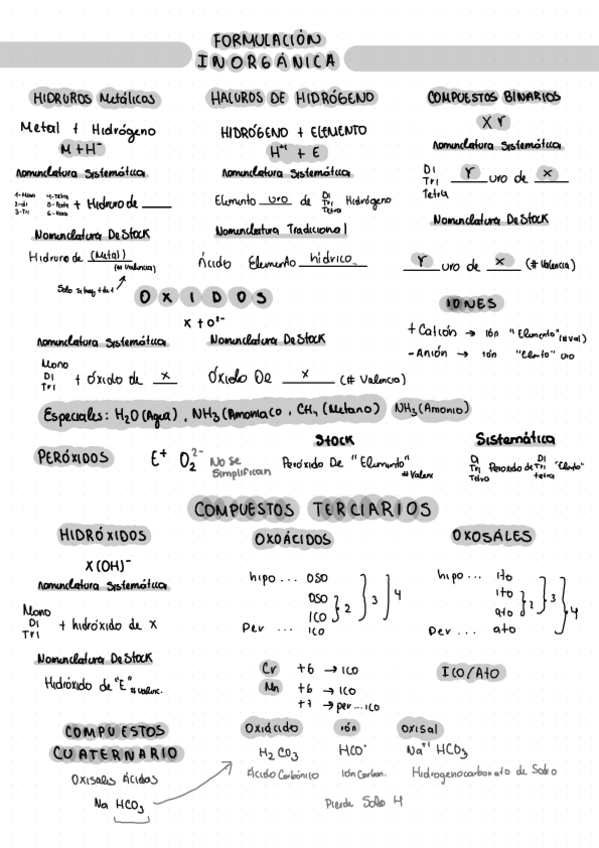 FORMULACIÓN
INORGÁNICA
HIDRUROS Metálicos
Metal + Hidrógeno
M + H⁻
Nomenclatura Sistemática
1-Mono 4-Tetra
2-di 5-Penta
3-Tri 6-Hexa
+ Hidruro de ____
Nomenclatura De Stock
Hidruro de (Metal)
(nº Valencia)
Solo si hay + de 1
HALUROS DE HIDRÓGENO
HIDRÓGENO + ELEMENTO
H⁺¹ + E
Nomenclatura Sistemática
Elemento uro de Di Tri Tetra Hidrógeno
Nomenclatura Tradicional
Ácido Elemento hídrico
COMPUESTOS BINARIOS
X Y
Nomenclatura Sistemática
DI
Tri
Tetra
Y uro de X
Nomenclatura De Stock
Y uro de X (# Valencia)
OXIDOS
X + O²⁻
Nomenclatura Sistemática
Mono
DI
Tri
+ óxido de X
Nomenclatura De Stock
Óxido De X (# Valencia)
IONES
+ Catión → ión "Elemento" (# val)
- Anión → ión "Elemto" uro
Especiales: H₂O (Agua), NH₃ (Amoniaco, CH₄ (Metano) NH₃ (Amonio)
PERÓXIDOS
E⁺ O₂²⁻
No Se
Simplifican
Stock
Peróxido De "Elemento"
# Valenc
Sistemática
Di
Tri
Tetra
Peroxido de
DI
Tri
tetra
"Elemto"
COMPUESTOS TERCIARIOS
HIDRÓXIDOS
X(OH)⁻
Nomenclatura Sistemática
Mono
DI
Tri
+ hidróxido de X
Nomenclatura De Stock
Hidróxido de "E" # valenc.
OXOÁCIDOS
hipo ... OSO
OSO
ICO
Per ... ICO
2
3
4
Cr +6 → ICO
Mn +6 → ICO
+7 → per...ICO
OXOSÁLES
hipo ... ito
ito
ato
Per ... ato
2
3
4
ICO/ATO
COMPUESTOS
CUATERNARIO
Oxisales Ácidas
Na HCO₃
Oxiácido
H₂CO₃
Ácido Carbónico
ión
HCO⁻
Ión Carbon.
Oxisal
Na⁺¹ HCO₃
Hidrogenocarbonato de Sodio
Pierde Solo H